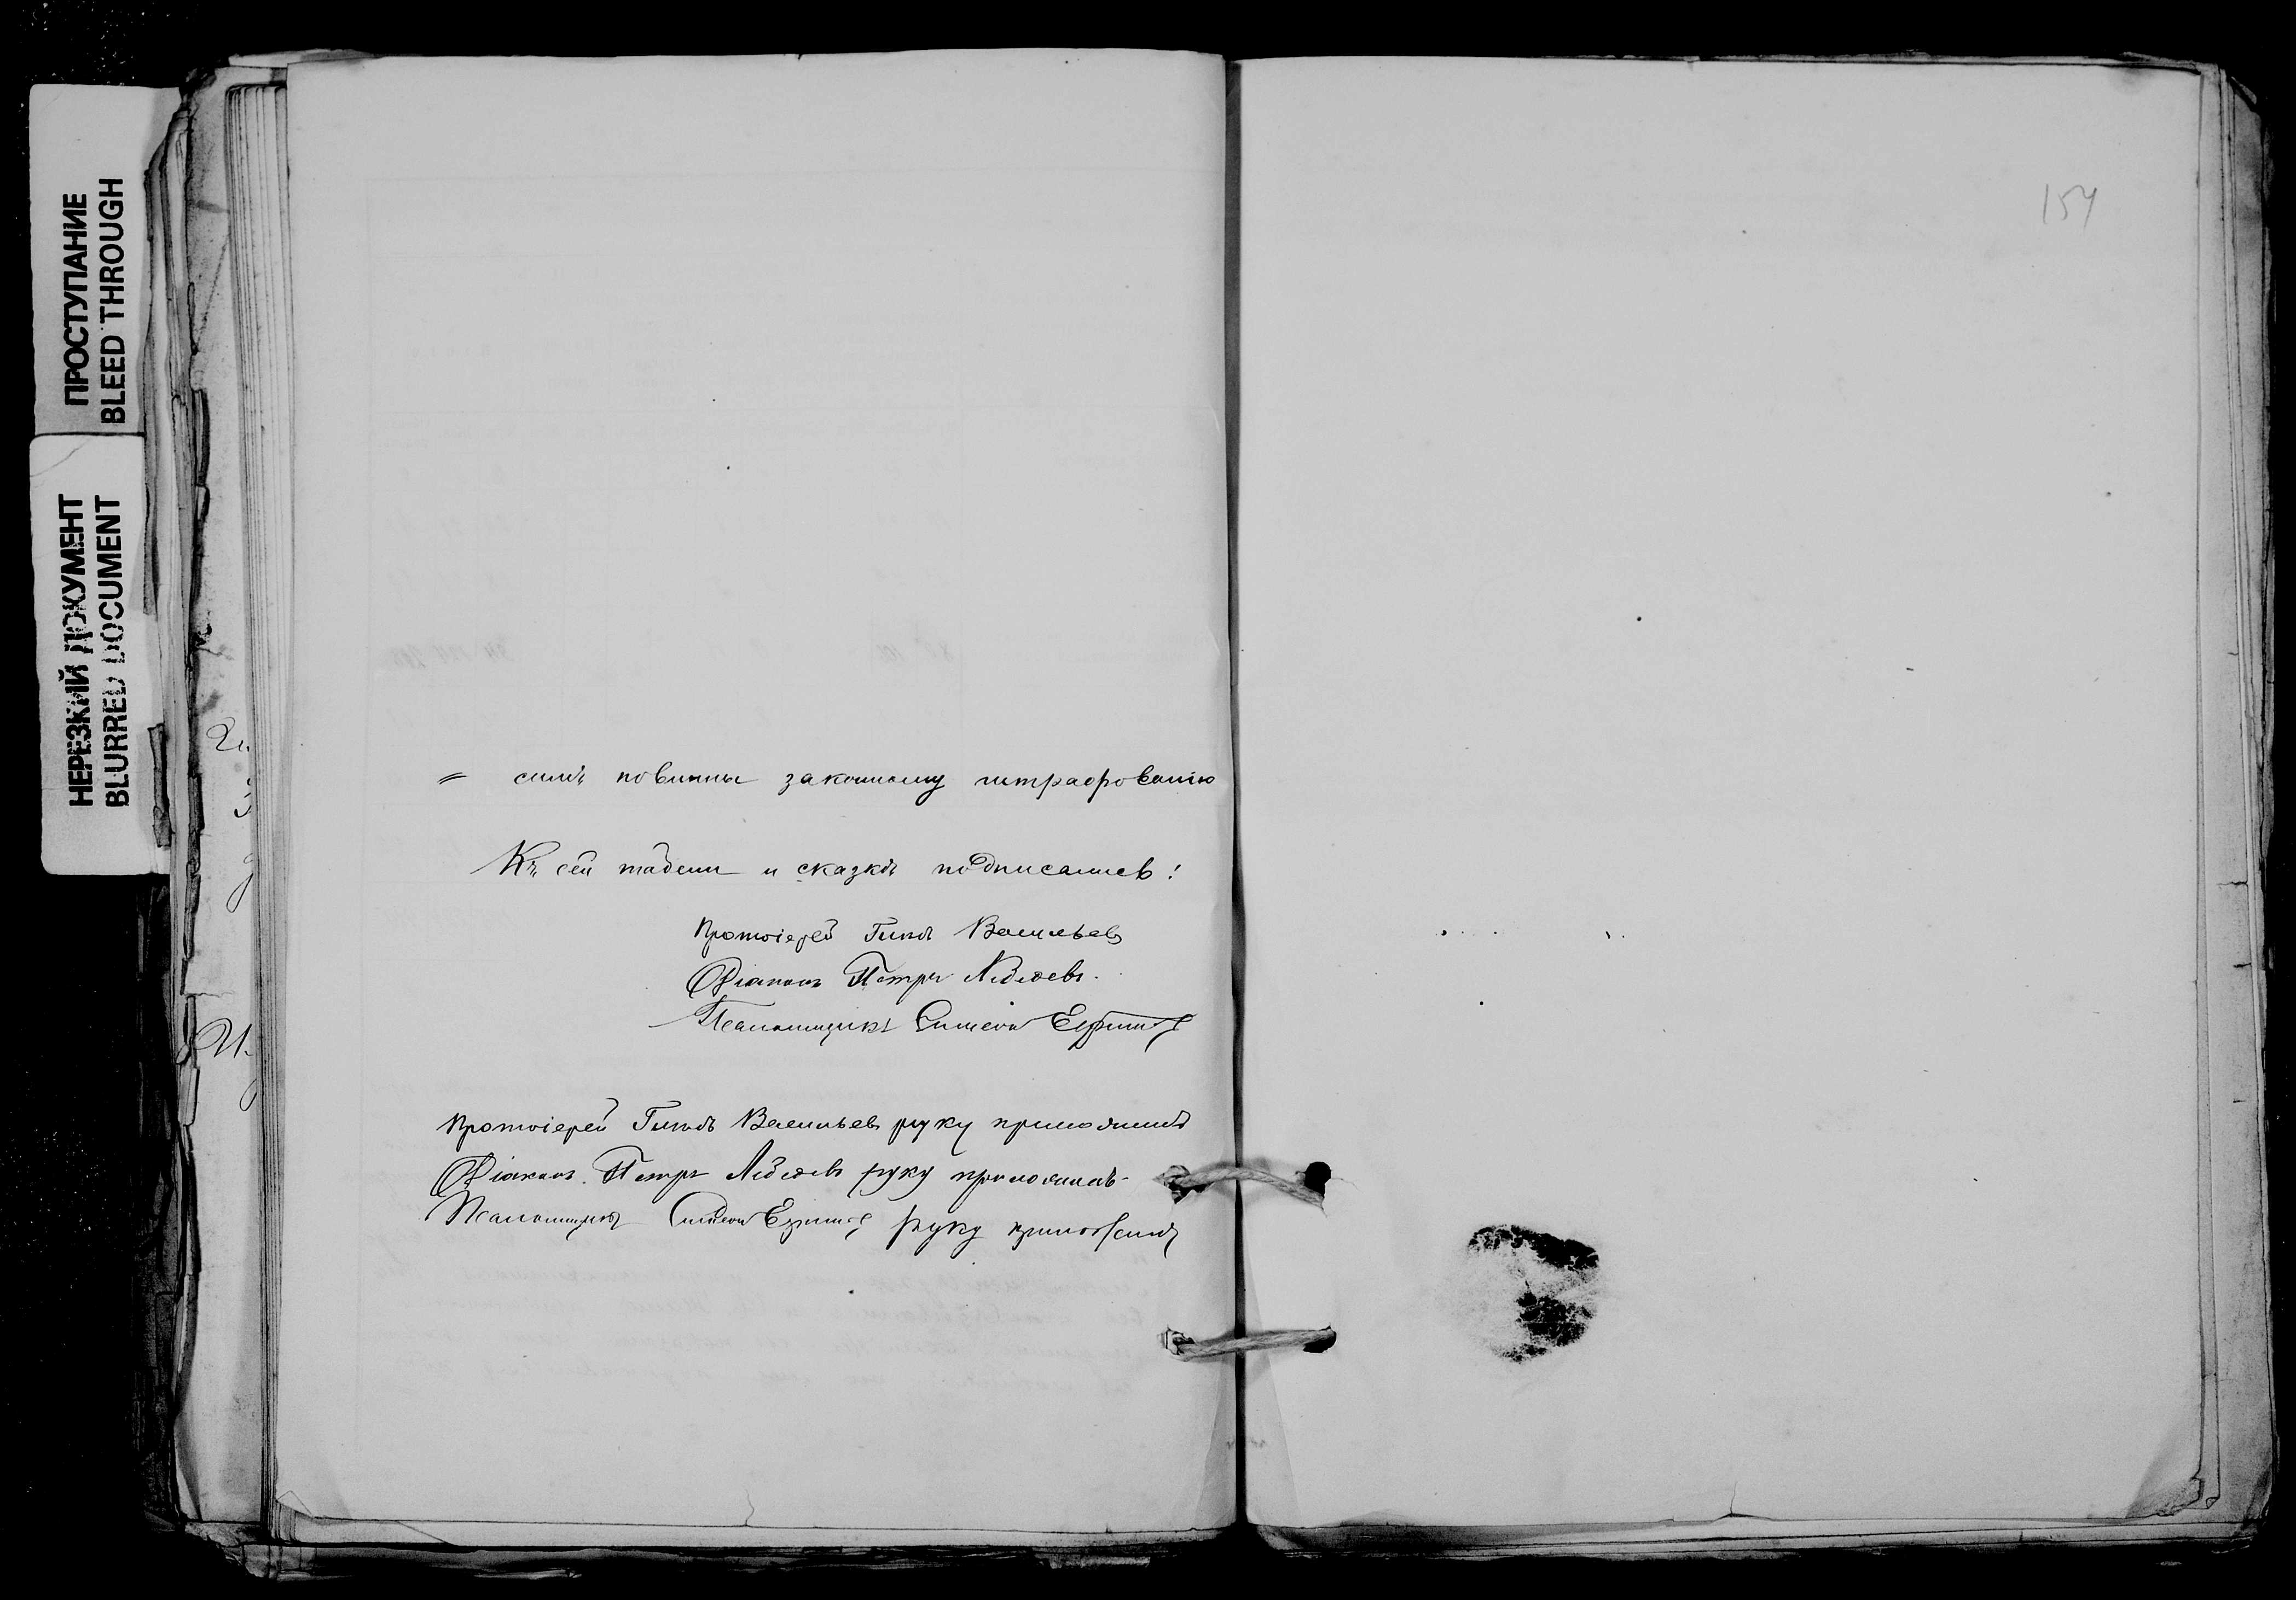 ПРОСТУПАНИЕ
BLEED THROUGH
НЕРЕЗКИЙ ДОКУМЕНТ
BLURRED DOCUMENT
154
= силѣ повинны законному штрафованію
Къ сей табели и сказкѣ подписались:
Протоіерей Гликъ Васильевъ
Діаконъ Петръ Лебедевъ.
Псаломщикъ Симеонъ
Протоіерей Гликъ Васильевъ руку приложилъ
Діаконъ Петръ Лебедевъ руку приложилъ
Псаломщикъ Симеонъ руку приложилъ